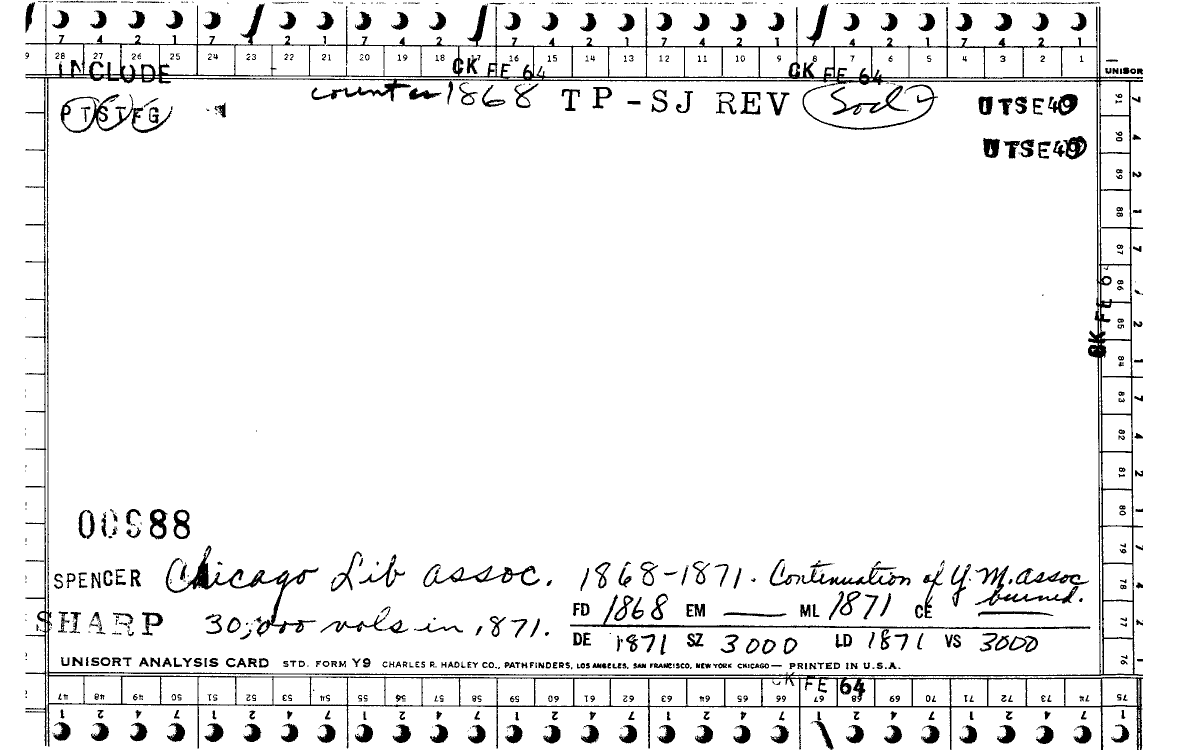 7 4 2 1 7 4 2 1 7 4 2 1 7 4 2 1 7 4 2 1 7 4 2 1 7 4 2 1
28 27 26 25 24 23 22 21 20 19 18 17 16 15 14 13 12 11 10 9 8 7 6 5 4 3 2 1
INCLUDE CK FE 64 CK FE 64 UNISOR
count as 1868 TP-SJ REV UTSE49
PTSTFG
UTSE49
91 90 89 88 87 86 85 84 83 82 81 80 79 78 77 76
CK FE 6
00988
SPENCER Chicago Lib assoc. 1868-1871. Continuation of Y.M. assoc
burned.
FD 1868 EM ML 1871 CE
SHARP 30,000 vols in 1871.
DE 1871 SZ 3000 LD 1871 VS 3000
UNISORT ANALYSIS CARD STD. FORM Y9 CHARLES R. HADLEY CO., PATHFINDERS, LOS ANGELES, SAN FRANCISCO, NEW YORK CHICAGO— PRINTED IN U.S.A.
CK FE 64
47 48 49 50 51 52 53 54 55 56 57 58 59 60 61 62 63 64 65 66 67 68 69 70 71 72 73 74 75
1 2 4 7 1 2 4 7 1 2 4 7 1 2 4 7 1 2 4 7 1 2 4 7 1 2 4 7 1